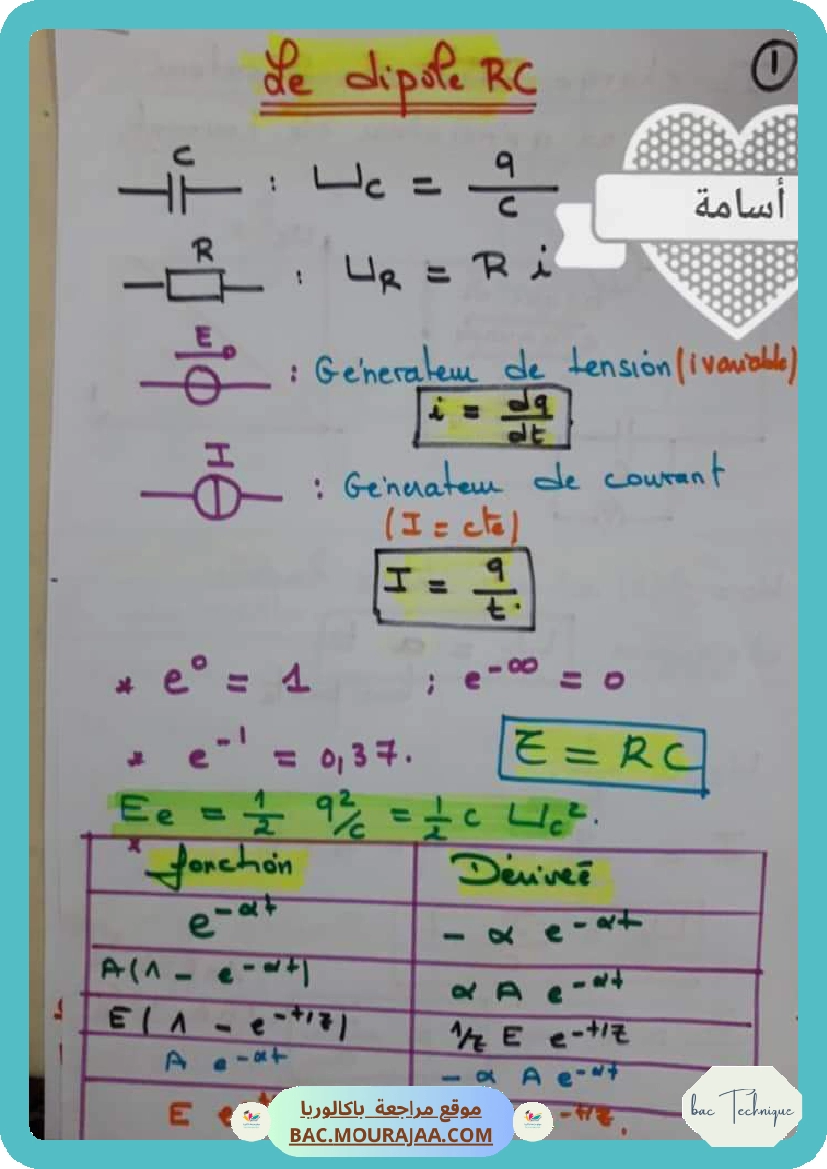 Le dipôle RC
1
C : Uc = q/c
أسامة
R : UR = R i
E : Génerateur de tension (i variable)
i = dq/dt
I : Génerateur de courant
(I = cte)
I = q/t.
* e⁰ = 1 ; e^-∞ = 0
* e^-1 = 0,37.
τ = RC
Ee = 1/2 q²/c = 1/2 c Uc².
* fonction Dérivée
e^-αt - α e^-αt
A(1 - e^-αt) α A e^-αt
E(1 - e^-t/τ) 1/τ E e^-t/τ
A e^-αt - α A e^-αt
E e -t/τ.
موقع مراجعة باكالوريا
BAC.MOURAJAA.COM
bac Technique